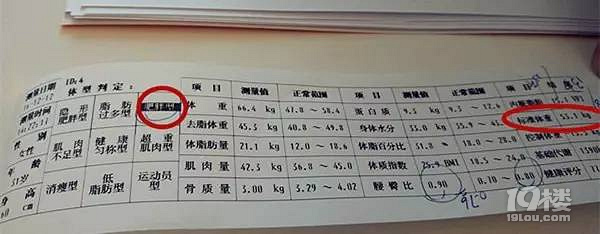 测量日期 ID:4
体型判定:
测量时间
14:22:51
性别
女性
年龄
51岁
身高
60 cm
隐形肥胖型 脂肪过多型 肥胖型
肌肉不足型 健康匀称型 超重肌肉型
消瘦型 低脂肪型 运动员型
项目 测量值 正常范围 项目 测量值 正常范围 项目
体重 66.4 kg 47.8 ~ 58.4 蛋白质 9.5 kg
去脂体重 45.3 kg 40.8 ~ 49.8 身体水分 33.0 kg 标准体重 53.1 kg
体脂肪量 21.1 kg 12.0 ~ 18.6 体脂百分比 31.8 % 18.0 ~ 28.0
肌肉量 42.3 kg 36.8 ~ 45.0 体质指数 25.9 BMI 18.5 ~ 24.0 基础代谢
骨质量 3.00 kg 3.29 ~ 4.02 腰臀比 0.90 0.70 ~ 0.80 健康评分
19楼
19lou.com